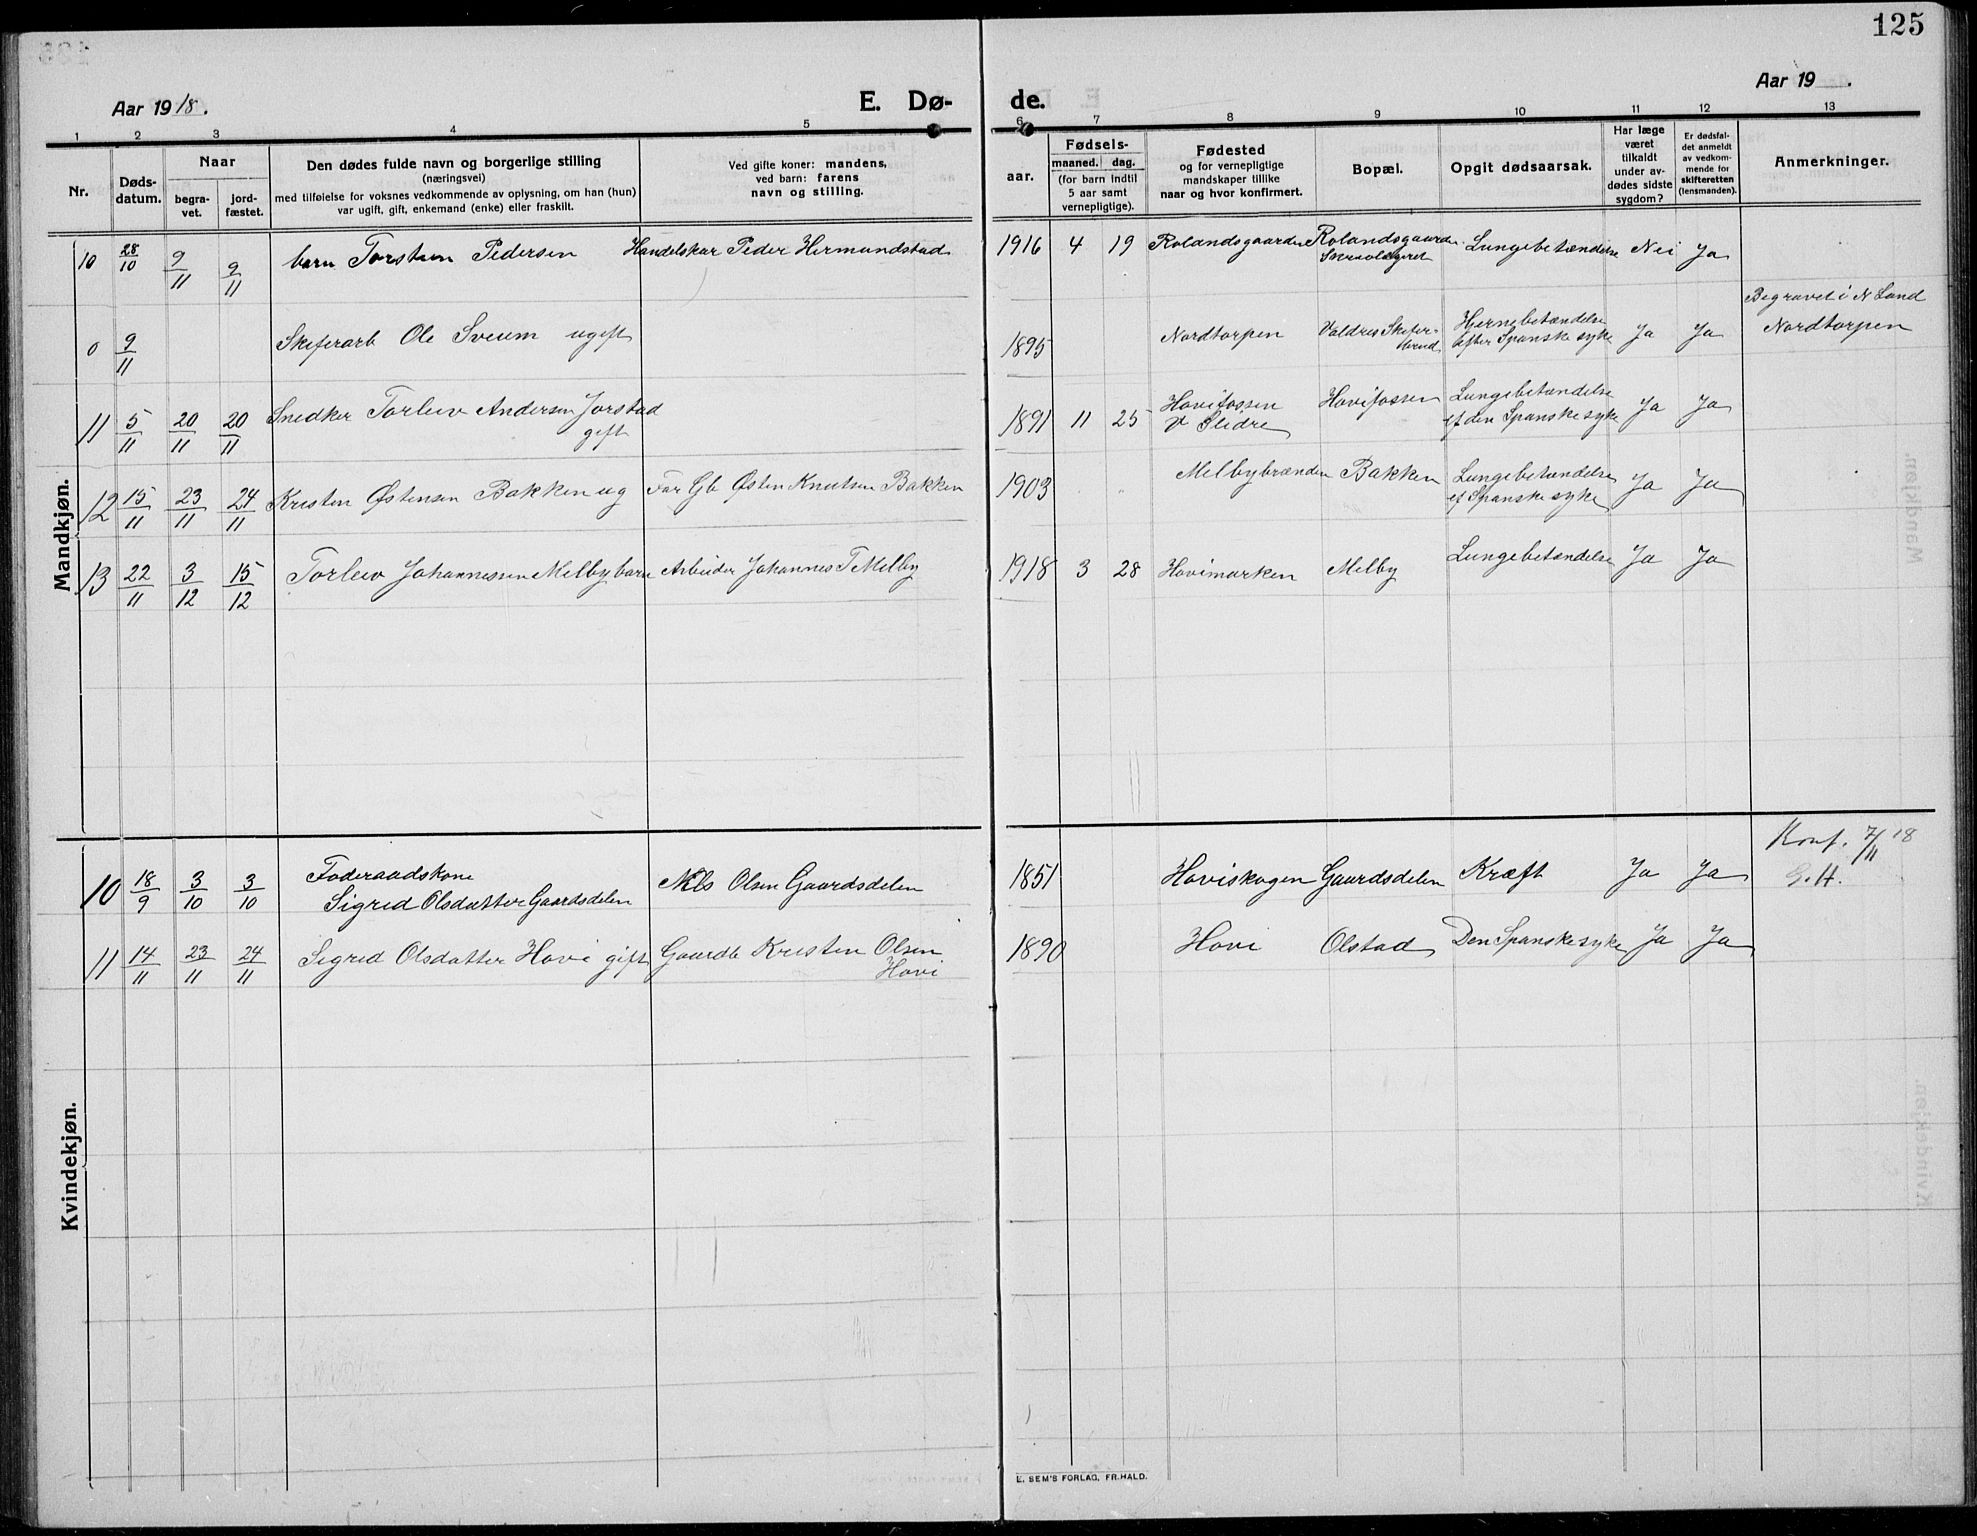 125
Aar 1918.
E. Dø-
de.
Aar 19 .
1 2 3 4 5
6 7 8 9 10 11 12 13
Nr.
Døds-
datum.
Naar
begra-
vet.
jord-
fæstet.
Den dødes fulde navn og borgerlige stilling
(næringsvei)
med tilføielse for voksnes vedkommende av oplysning, om han (hun)
var ugift, gift, enkemand (enke) eller fraskilt.
Ved gifte koner: mandens,
ved barn: farens
navn og stilling.
Fødsels-
aar.
maaned. dag.
(for barn indtil
5 aar samt
vernepligtige).
Fødested
og for vernepligtige
mandskaper tillike
naar og hvor konfirmert.
Bopæl.
Opgit dødsaarsak.
Har læge
været
tilkaldt
under av-
dødes sidste
sygdom?
Er dødsfal-
det anmeldt
av vedkom-
mende for
skifteretten
(lensmanden).
Anmerkninger.
Mandkjøn.
10 28/10 9/11 9/11 barn Torstein Pedersen Handelskar Peder Hermundstad 1916 4 19 Rolandsgaarden Rolandsgaarden Lungebetændelse Nei Ja
Begravet i N Land
0 9/11 Skiferarb Ole Sveum ugift 1895 Nordtorpen Valdres Skifer- Hernebetændelse Ja Ja Nordtorpen
brud efter Spanske syke
11 5/11 20/11 20/11 Snedker Torleiv Andersen Jorstad 1891 11 25 Hovifossen Hovifossen Lungebetændelse Ja Ja
gift V Slidre ef den Spanske syke
12 15/11 23/11 24/11 Kristen Østensen Bakken ug Far Gb Østen Knutsen Bakken 1903 " Melbybrænden Bakken Lungebetændelse Ja Ja
ef Spanske syke
13 22/11 3/12 15/12 Torleiv Johannessen Melby barn Arbeider Johannes T Melby 1918 3 28 Hovimarken Melby Lungebetændelse Ja Ja
Kvindekjøn.
Konf. 7/11 18
10 18/9 3/10 3/10 Føderaadskone Nils Olsen Gaardsdelen 1851 Hoviskogen Gaardsdelen Kræft Ja Ja G.H.
Sigrid Olsdatter Gaardsdelen
11 14/11 23/11 24/11 Sigrid Olsdatter Hovi gift Gaardb Kristen Olsen 1890 Hovi Olstad Den Spanske syke Ja Ja
Hovi
E. SEM'S FORLAG, FR.HALD.